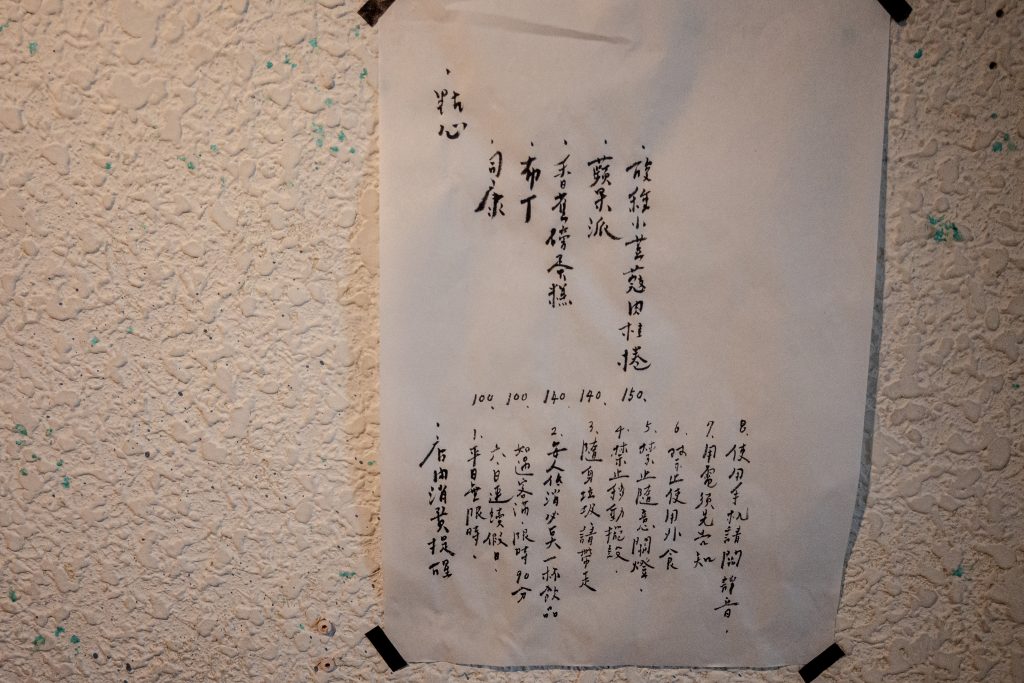 ・點心
・司康 100、
・布丁 100、
・香蕉磅蛋糕 140、
・蘋果派 140、
・酸種小荳蔻肉桂捲 150、
・店內消費提醒
1、平日無限時、
六、日連續假日、
如遇客滿、限時90分
2、每人低消必点一杯飲品
3、隨身垃圾請帶走
4、禁止移動擺設、
5、禁止隨意開燈、
6、禁止使用外食
7、用電須先告知
8、使用手机請開靜音、